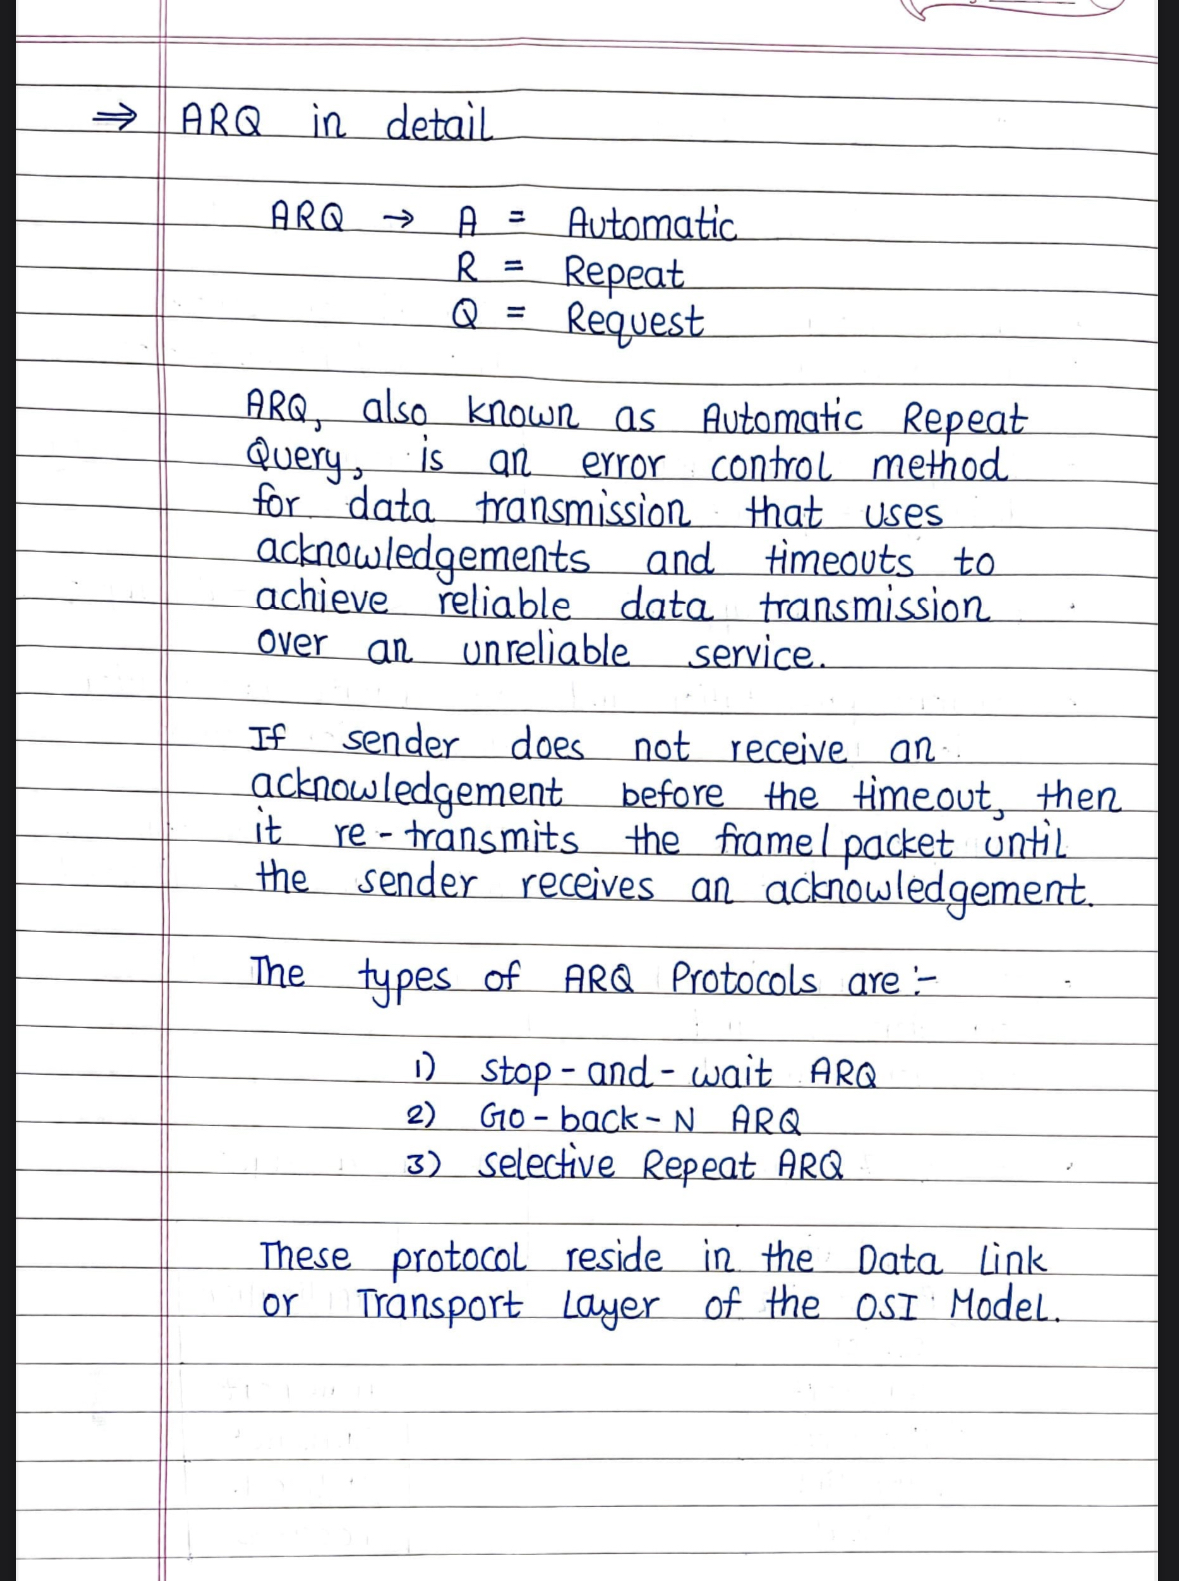 ⇒ ARQ in detail
ARQ → A = Automatic
R = Repeat
Q = Request
ARQ, also known as Automatic Repeat
Query, is an error control method
for data transmission that uses
acknowledgements and timeouts to
achieve reliable data transmission
over an unreliable service.
If sender does not receive an
acknowledgement before the timeout, then
it re-transmits the frame/packet until
the sender receives an acknowledgement.
The types of ARQ Protocols are :-
1) Stop-and-wait ARQ
2) Go-back-N ARQ
3) Selective Repeat ARQ
These protocol reside in the Data Link
or Transport Layer of the OSI Model.